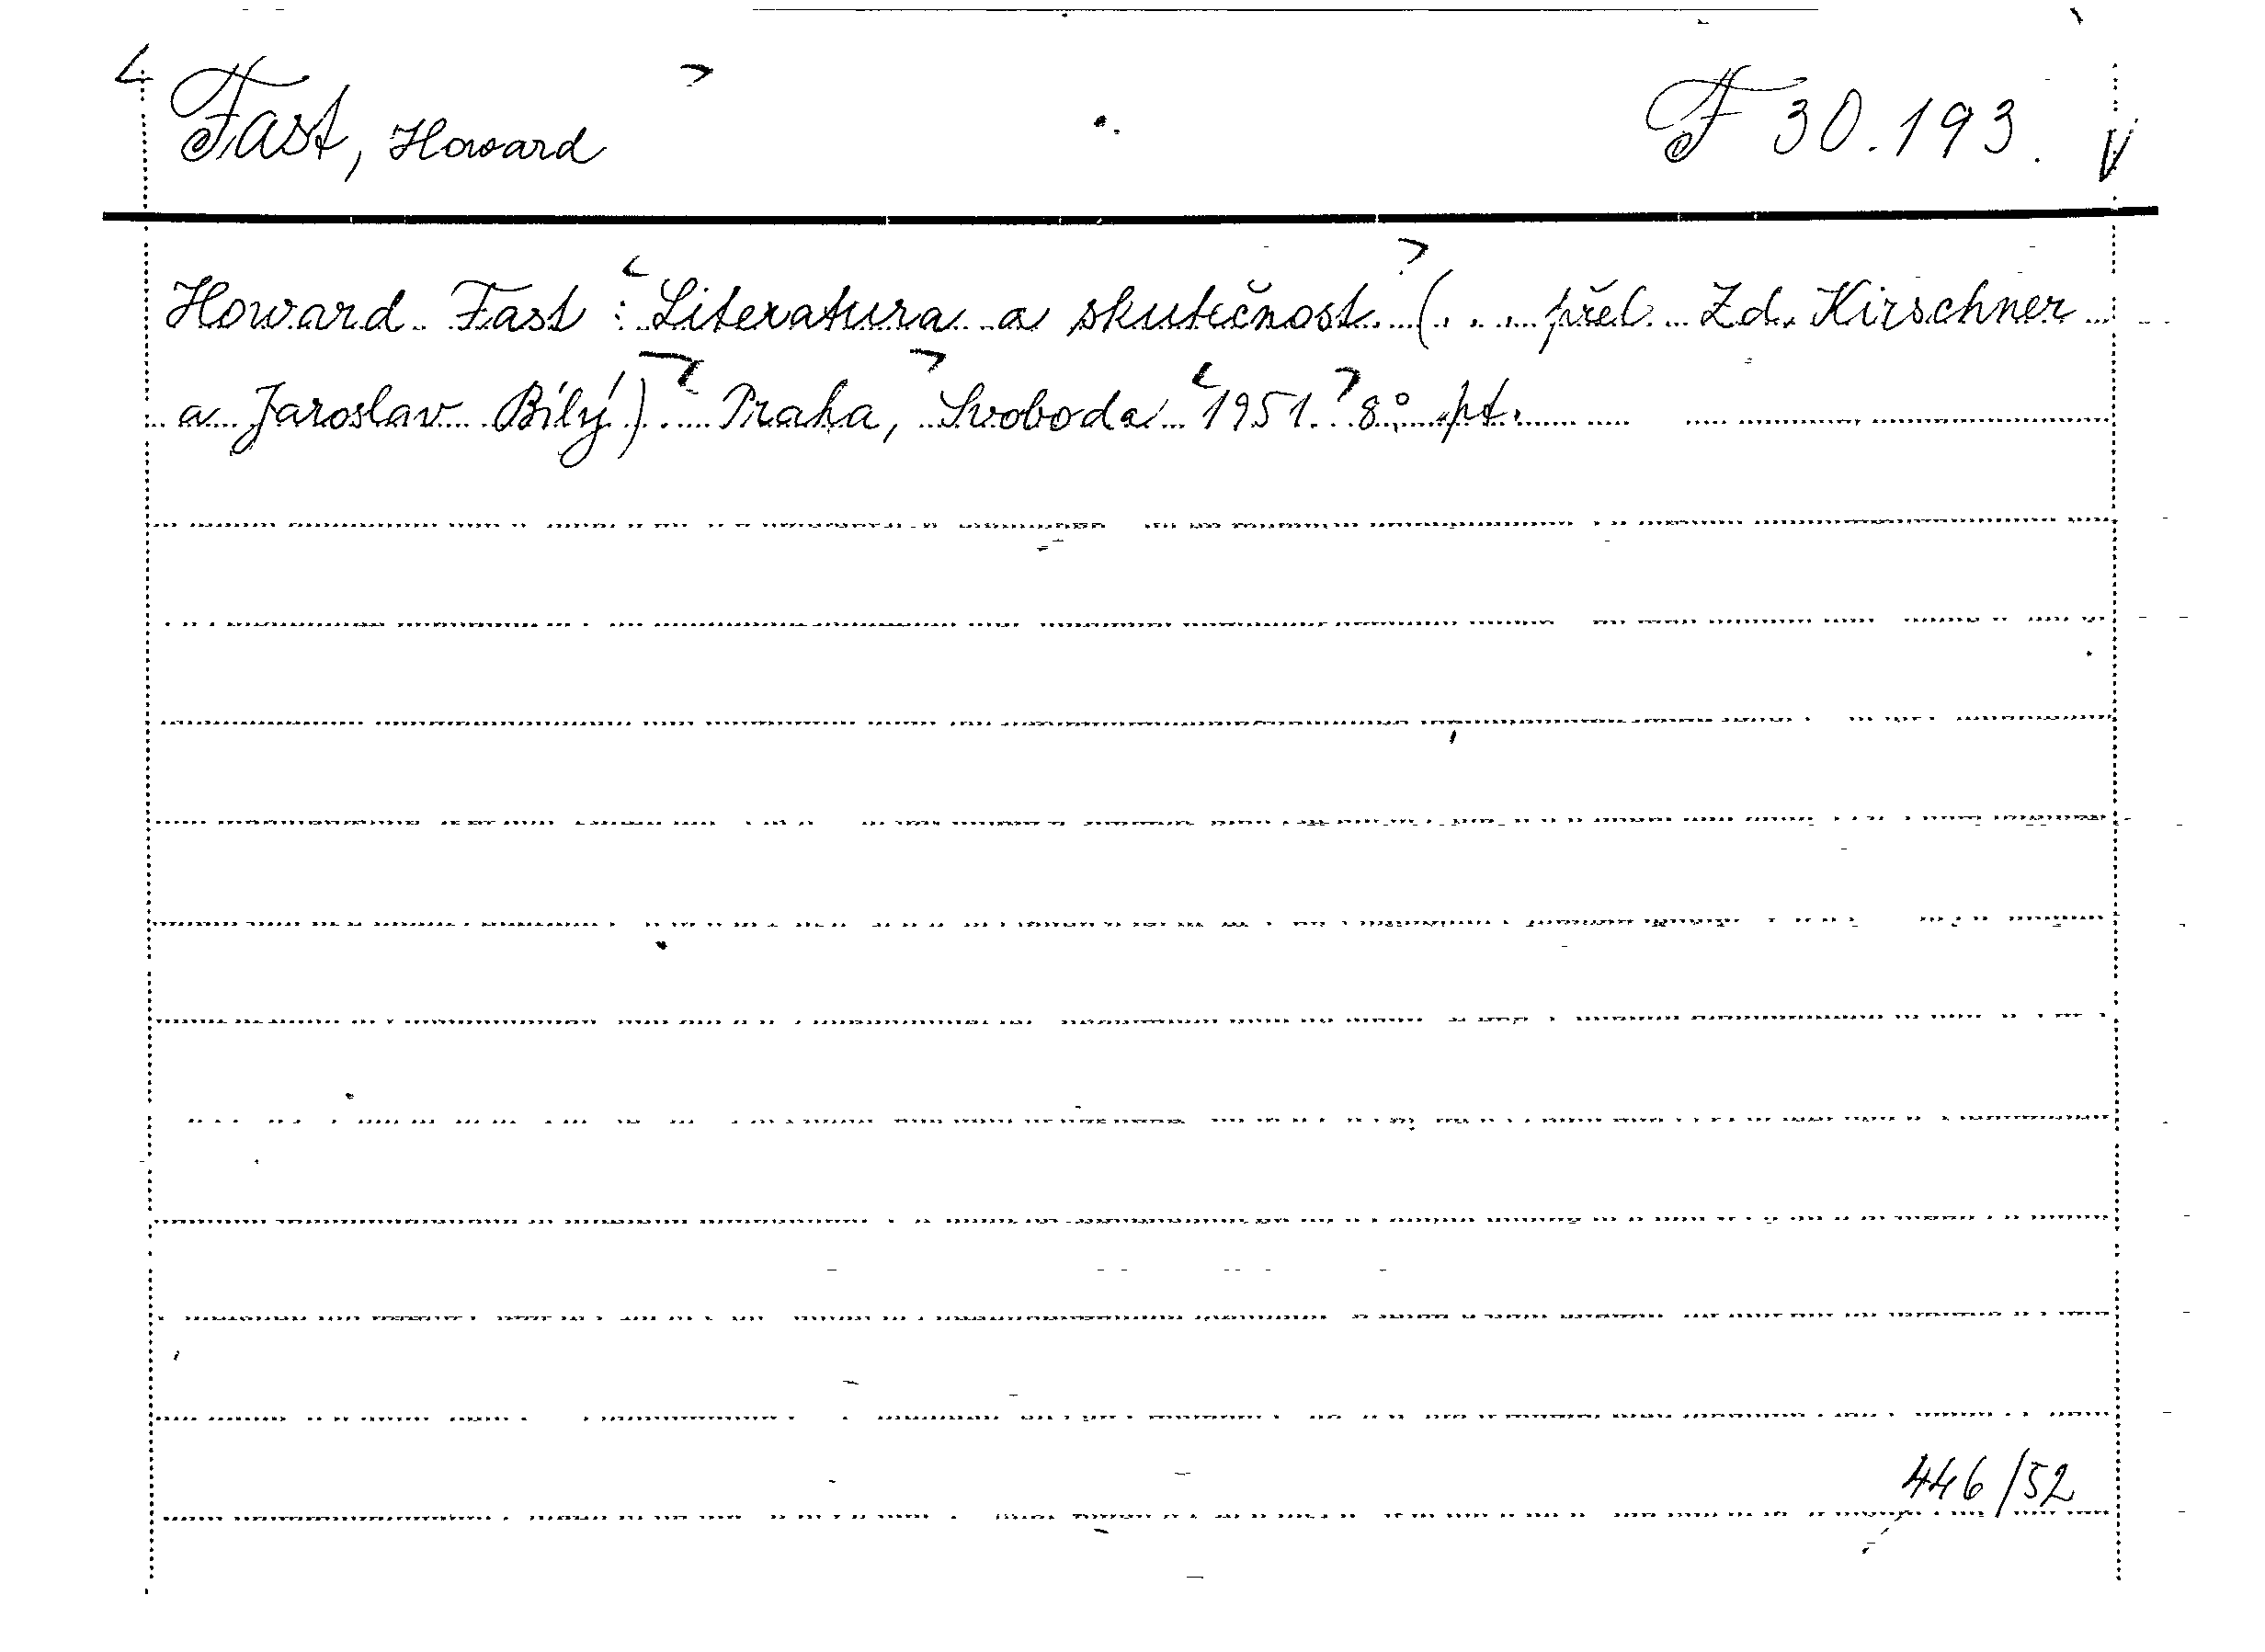 Fast, Howard F 30.193. V
Howard Fast : Literatura a skutečnost (... přel. Zd. Kirschner
a Jaroslav Bílý). Praha, Svoboda 1951. 8°. pt.
446/52